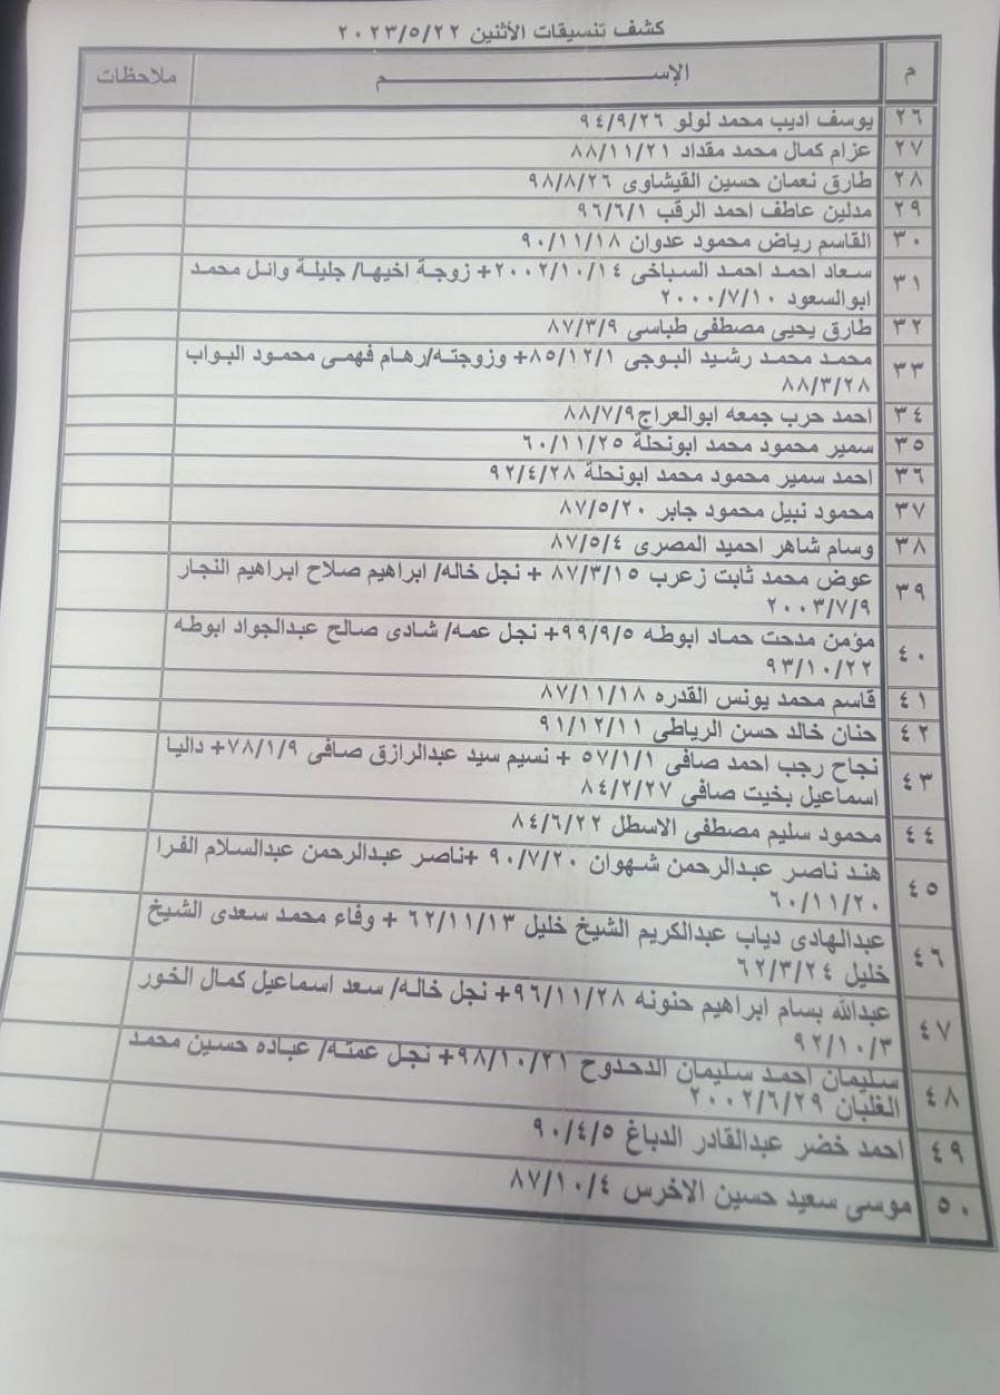 كشف تنسيقات الأثنين ٢٠٢٣/٥/٢٢
م الإســـــم ملاحظات
٢٦ يوسف اديب محمد لولو ٩٤/٩/٢٦
٢٧ عزام كمال محمد مقداد ٨٨/١١/٢١
٢٨ طارق نعمان حسين القيشاوى ٩٨/٨/٢٦
٢٩ مدلين عاطف احمد الرقب ٩٦/٦/١
٣٠ القاسم رياض محمود عدوان ٩٠/١١/١٨
٣١ سعاد احمد احمد السباخى ٢٠٠٢/١٠/١٤+ زوجة اخيها/ جليلة وائل محمد
ابوالسعود ٢٠٠٠/٧/١٠
٣٢ طارق يحيى مصطفى طباسى ٨٧/٣/٩
٣٣ محمد محمد رشيد البوجى ٨٥/١٢/١+ وزوجته/رهام فهمى محمود البواب
٨٨/٣/٢٨
٣٤ احمد حرب جمعه ابوالعراج٨٨/٧/٩
٣٥ سمير محمود محمد ابونحلة ٦٠/١١/٢٥
٣٦ احمد سمير محمود محمد ابونحلة ٩٢/٤/٢٨
٣٧ محمود نبيل محمود جابر ٨٧/٥/٢٠
٣٨ وسام شاهر احميد المصرى ٨٧/٥/٤
٣٩ عوض محمد ثابت زعرب ٨٧/٣/١٥ + نجل خاله/ ابراهيم صلاح ابراهيم النجار
٢٠٠٣/٧/٩
٤٠ مؤمن مدحت حماد ابوطه ٩٩/٩/٥+ نجل عمه/ شادى صالح عبدالجواد ابوطه
٩٣/١٠/٢٢
٤١ قاسم محمد يونس القدره ٨٧/١١/١٨
٤٢ حنان خالد حسن الرياطى ٩١/١٢/١١
٤٣ نجاح رجب احمد صافى ٥٧/١/١ + نسيم سيد عبدالرازق صافى ٧٨/١/٩+ داليا
اسماعيل بخيت صافى ٨٤/٢/٢٧
٤٤ محمود سليم مصطفى الاسطل ٨٤/٦/٢٢
٤٥ هند ناصر عبدالرحمن شهوان ٩٠/٧/٢٠ +ناصر عبدالرحمن عبدالسلام الفرا
٦٠/١١/٢٠
٤٦ عبدالهادى دياب عبدالكريم الشيخ خليل ٦٢/١١/١٣ + وفاء محمد سعدى الشيخ
خليل ٦٢/٣/٢٤
٤٧ عبدالله بسام ابراهيم حنونه ٩٦/١١/٢٨+ نجل خاله/ سعد اسماعيل كمال الخور
٩٢/١٠/٣
٤٨ سليمان احمد سليمان الدحدوح ٩٨/١٠/٢١+ نجل عمته/ عباده حسين محمد
الغلبان ٢٠٠٢/٦/٢٩
٤٩ احمد خضر عبدالقادر الدباغ ٩٠/٤/٥
٥٠ موسى سعيد حسين الاخرس ٨٧/١٠/٤